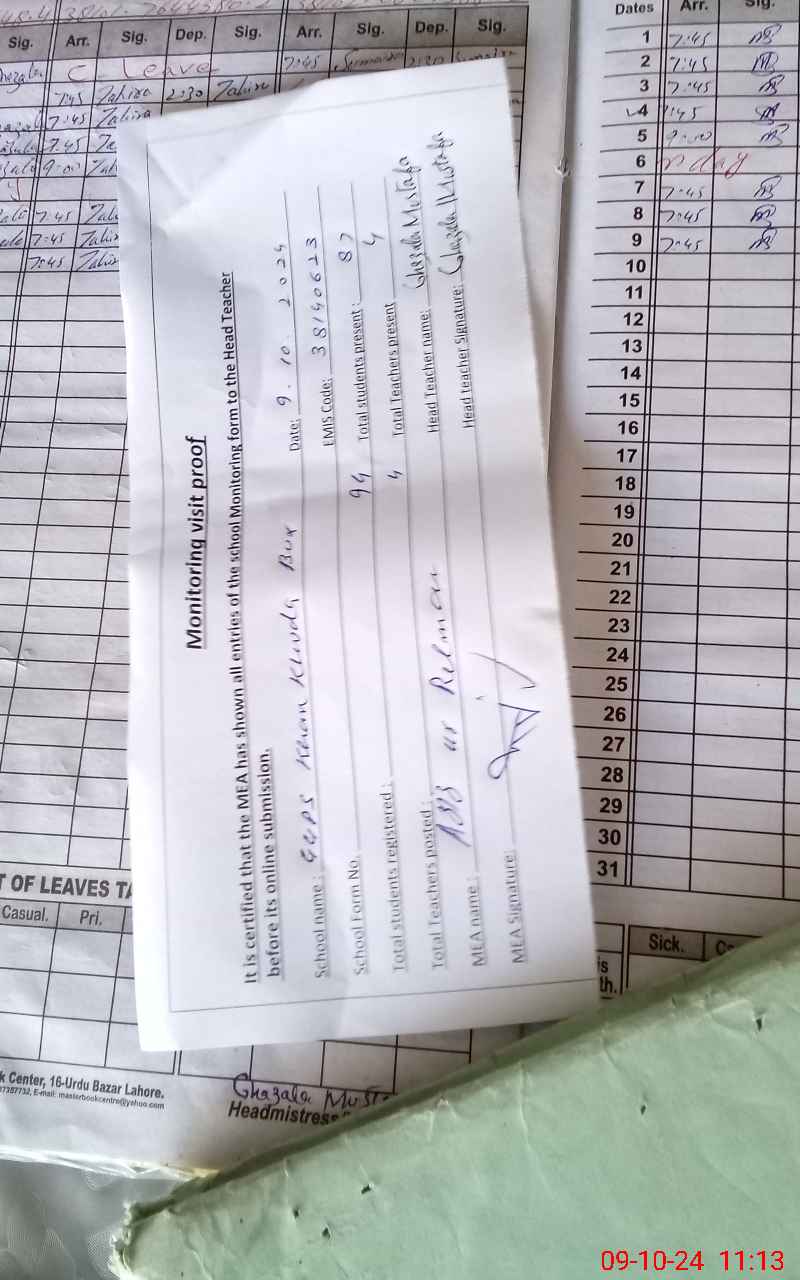 Monitoring visit proof
It is certified that the MEA has shown all entries of the school Monitoring form to the Head Teacher
before its online submission.
School name : GGPS Khan Khuda Bux Date: 9. 10. 2024
School Form No. EMIS Code: 38140623
Total students registered : 94 Total students present : 87
Total Teachers posted : 4 Total Teachers present 4
MEA name : ur Rehman Head Teacher name: Ghazala Mustafa
MEA Signature: Head teacher Signature: Ghazala Mustafa
Sig. Arr. Sig. Dep. Sig. Arr. Sig. Dep. Sig.
C. Leave 7:45 2:30
7:45 Zahira 2:30 Zahira
7:45 Zahira
7:45
9:00
7:45
7:45
7:45
T OF LEAVES TA
Casual. Pri.
k Center, 16-Urdu Bazar Lahore.
E-mail: masterbookcentre@yahoo.com
Ghazala
Headmistress
Dates Arr. Sig.
1 7:45
2 7:45
3 7:45
4 7:45
5 9:00
6
7 7:45
8 7:45
9 7:45
10
11
12
13
14
15
16
17
18
19
20
21
22
23
24
25
26
27
28
29
30
31
Sick.
is
th.
09-10-24 11:13